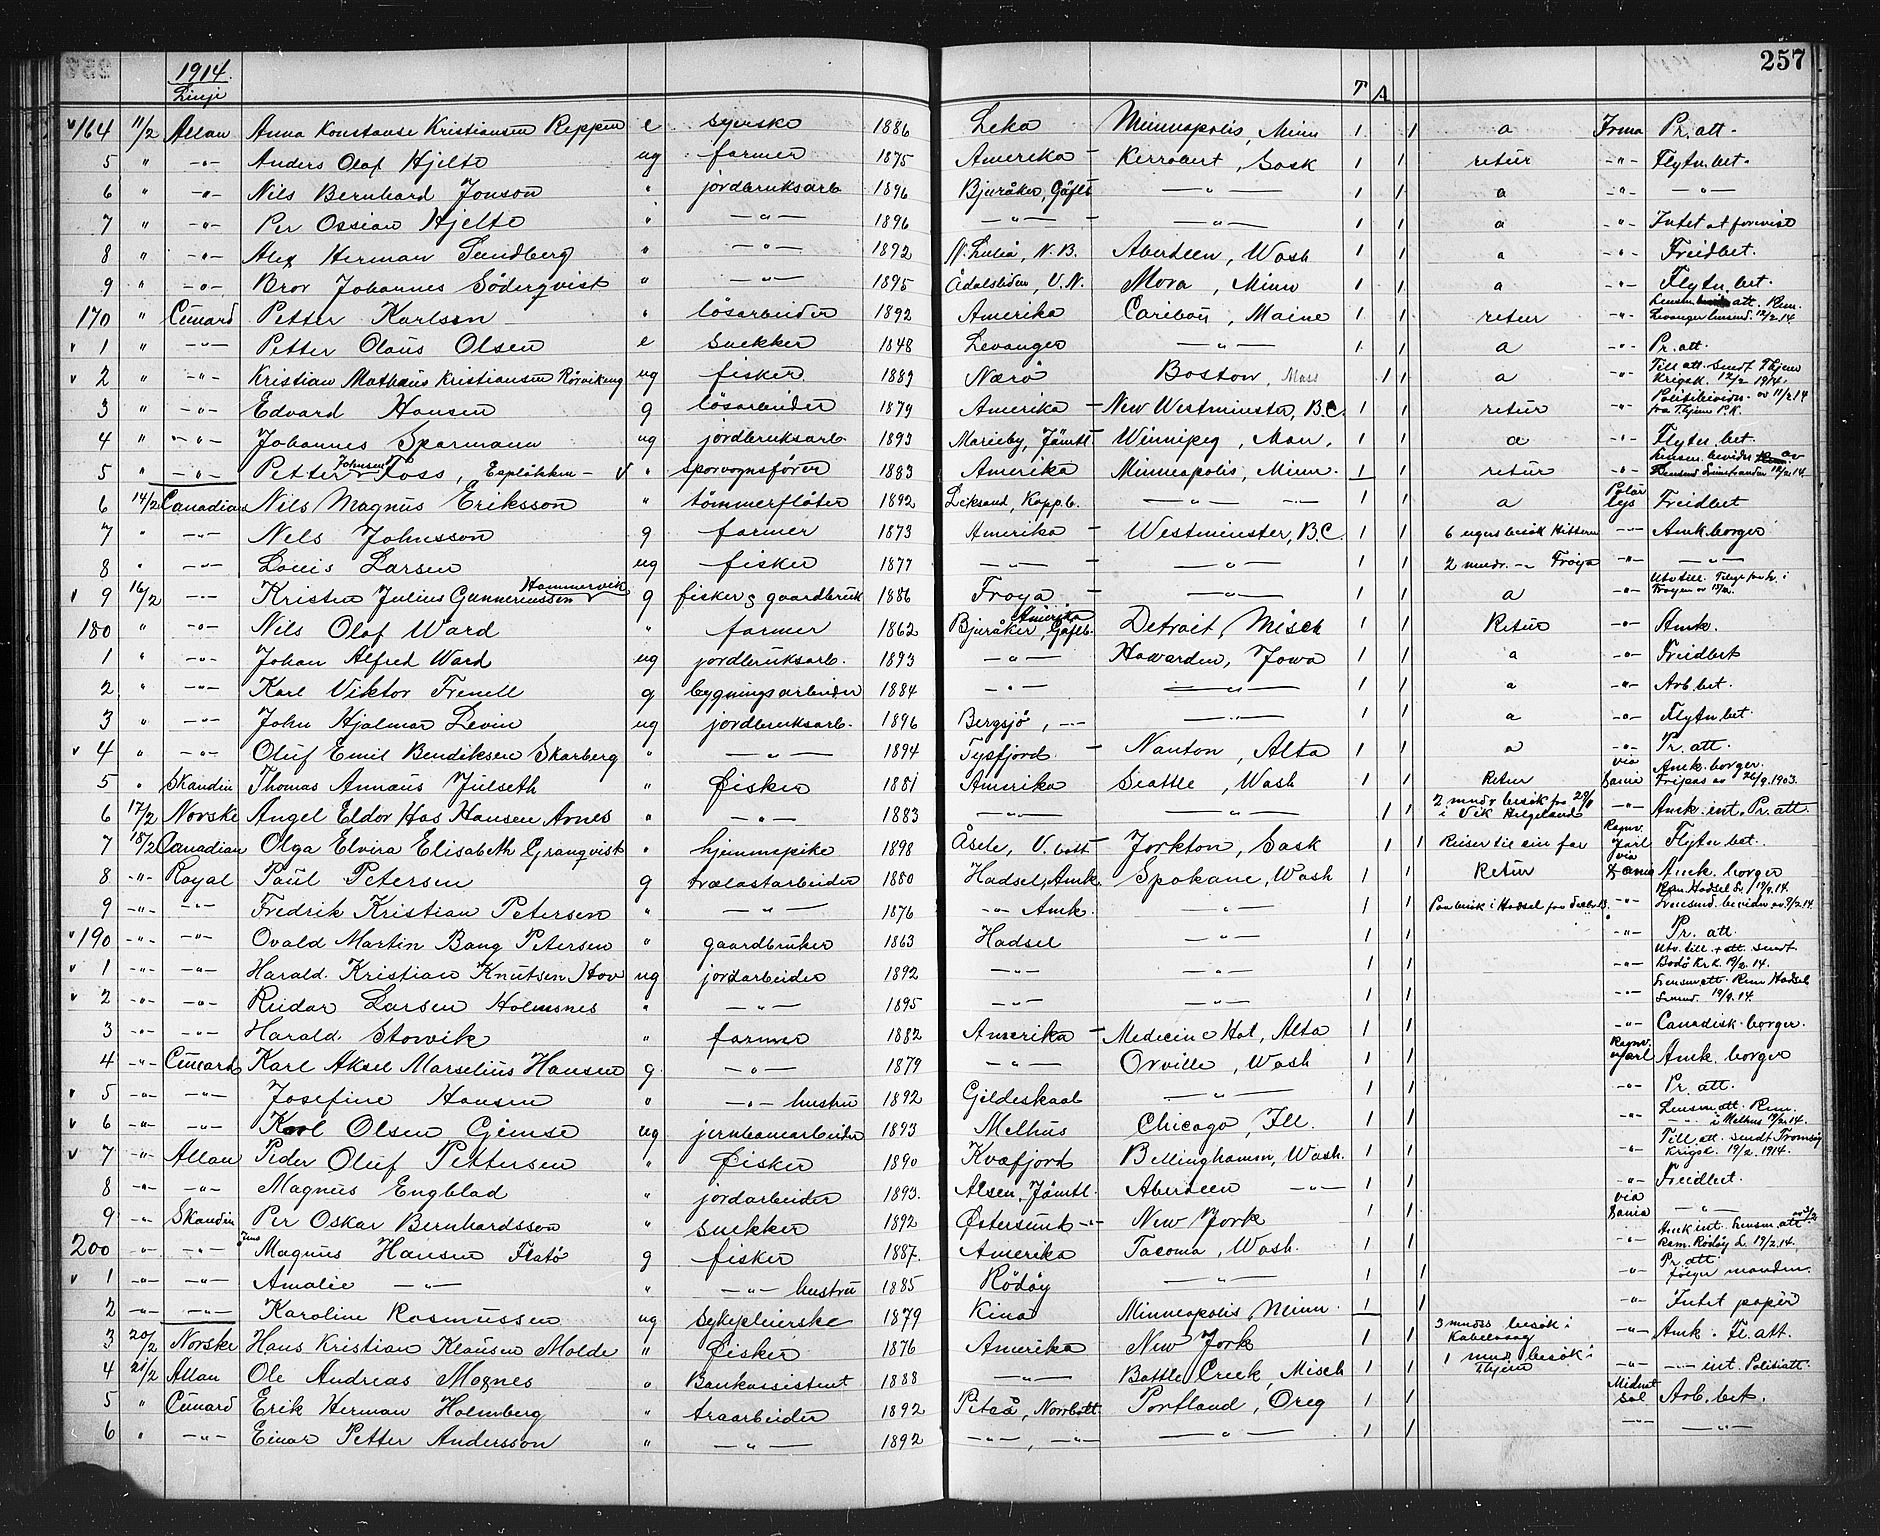 1914. 257
Linje T A
164 11/2 Allan Anna Konstanse Kristiansen Reppen e syerske 1886 Leka Minneapolis, Minn 1 1 a Irma Pr. att.
5 " -"- Anders Olof Hjelte ug farmer 1875 Amerika - Kerrobert, Sask 1 1 retur -"- Flytn. bet.
6 " -"- Nils Bernhard Jonson " jordbruksarb 1896 Bjuråker, Gäfleb -"- 1 1 a -"- -"-
7 " -"- Per Ossian Hjelte " -"- 1896 -"- -"- 1 1 a -"- Intet at forevise
8 " -"- Alex Herman Sundberg " -"- 1892 N. Luleå, N.B. Aberdeen, Wash 1 1 a -"- Freidbet.
9 " -"- Bror Johannes Söderqvist " -"- 1895 Ådalsliden, V.N. Mora, Minn 1 1 a -"- Flytn. bet.
170 " Cunard Petter Karlsen " løsarbeider 1892 Amerika Caribou, Maine 1 1 retur -"- Lensm. att. Rem. Levanger lensmd. 12/2.14
v 1 " -"- Petter Olaus Olsen e snekker 1848 Levanger -"- 1 1 a -"- Pr. att.
v 2 " -"- Kristian Mathæus Kristiansen Rørvikeng ug fisker 1889 Nærö Boston, Mass 1 1 a -"- Till. att. sendt Thjem Krigsk. 12/2 1914.
3 " -"- Edvard Hansen g løsarbeider 1879 Amerika - New Westminster, B.C. 1 1 retur " Politibevidn. av 11/2 14 fra Thjem P.K.
4 " -"- Johannes Sparmann ug jordbruksarb. 1893 Marieby, Jämtl. - Winnipeg, Man. 1 1 a -"- Flytn. bet.
5 " -"- Petter Johnsen Foss, Espløkken - v " sporvognsfører 1883 Amerika Minneapolis, Minn. 1 1 retur -"- Lensm. bevidn. av lensmd Leinstranden 12/2 14.
6 14/2 Canadian Nils Magnus Eriksson " tömmerflöter 1892 Leksand, Kopp.b. -"- 1 1 a Polarlys Freidbet
7 " -"- Nels Johnsson g farmer 1873 Amerika - Westminster, B.C. 1 1 6 ugers besøk Hitteren -"- Amk. borger
8 " -"- Louis Larsen ug fisker 1877 -"- -"- 1 1 2 mndr. -"- Frøya -"- -"-
v 9 16/2 -"- Kristen Julius Gunneriussen Hammervik g fisker & gaardbruk 1886 Froya - -"- 1 1 a -"- Utv till.
180 " -"- Nils Olof Ward " farmer 1862 Bjuråker, Gäfleb. Amerika Detroit, Misch 1 1 Retur -"- Amk.
1 " -"- Johan Alfred Ward ug jordbruksarb. 1893 -"- Hawarden, Jowa 1 1 a -"- Freidbet
2 " -"- Karl Viktor Frenell g bygningsarbeider 1884 -"- -"- 1 1 a -"- Arb. bet.
3 " -"- John Hjalmar Levin ug jordbruksarb. 1896 Bergsjö, -"- -"- 1 1 a -"- Flytn bet.
v 4 " -"- Oluf Emil Bendiksen Skarberg " -"- 1894 Tysfjord. - Nanton, Alta 1 1 a -"- Pr. att.
5 " Skandin Thomas Annæus Julseth " Fisker 1881 Amerika Seattle, Wash 1 1 Retur via Dania Amk. borger. Fripas av 26/9.1903.
6 17/2 Norske Angel Eldor Has Hansen Arnes " -"- 1883 -"- -"- 1 1 2 mndr besøk i Vik Helgeland -"- Amk. int. Pr. att.
7 18/2 Canadian Olga Elvira Elisabeth Granqvist " hjemmepike 1898 Åsele, V.bott Jorkton, Sask 1 1 Reiser til sin far Ragnv. Jarl Flytn bet.
8 -"- Royal Paul Petersen g trælastarbeider 1880 Hadsel, Amk. Spokane, Wash 1 1 Retur via Dania Amk. borger
9 -"- -"- Fredrik Kristian Petersen " -"- 1876 -"- Amk. -"- 1 1 Paa besøk i Hadsel fra -"- Rem Hadsel L. Lensmd. bevidn av 9/2.14.
v 190 -"- -"- Ovald Martin Bang Petersen " gaardbruker 1863 Hadsel -"- 1 1 -"- Pr. att.
v 1 -"- -"- Harald Kristian Knutsen Hov ug jordarbeider 1892 -"- -"- 1 1 -"- Utv. till. + att. sendt Bodö Kr.k. 19/2.14.
v 2 -"- -"- Reidar Larsen Holmsnes " -"- 1895 -"- -"- 1 1 -"- Lensm att. Rem Hadsel Lensmd.
3 -"- -"- Harald Storvik " farmer 1882 Amerika - Medecine Hat, Alta 1 1 -"- Canadisk borger.
4 -"- Cunard Karl Aksel Marselius Hansen g -"- 1879 -"- Orville, Wash 1 1 Ragnv. Jarl Amk. borger
v 5 -"- -"- Josefine Hansen " -"- hustru 1892 Gildeskaal -"- 1 1 -"- Pr. att.
v 6 -"- -"- Karl Olsen Gjemse ug jernbanearbeider 1893 Melhus Chicago, Ill. 1 1 -"- Lensm att. Rem. i Melhus 19/2.14.
v 7 -"- Allan Peder Oluf Pettersen " Fisker 1890 Kvæfjord Bellinghamm, Wash. 1 1 -"- Till att. sendt Tromsø Krigsk. 19/2. 1914.
8 -"- -"- Magnus Engblad " jordarbeider 1893. Alsen, Jämtl. Aberdeen -"- 1 1 -"- Freidbet.
9 -"- Skandin Per Oskar Bernhardsson " snekker 1892 Østersund -"- New Jork 1 1 via Dania -"-
200 -"- -"- Jens Magnus Hansen Flatø g fisker 1887. Amerika Tacoma, Wash. 1 1 -"- Amk int. Lensm. att Rem. Rödöy L. 19/2.14.
v 1 -"- -"- Amalie -"- " -"- hustru 1885 Rödöy -"- 1 1 -"- Pr. att følger manden.
2 -"- -"- Karoline Rasmussen ug sykepleierske 1879 Kina Minneapolis, Minn. 1 1 -"- Intet papir
3 20/2 Norske Hans Kristian Klausen Molde " Fisker 1876 Amerika New Jork 1 1 3 mndrs besøk i Kabelvaag -"- Amk. Fl. att.
4 21/2 Allan Ole Andreas Mognes " Bankassistent 1888 -"- Battle Creek, Misch 1 1 1 mnd besøk i Thjem -"- -"- int. Politiatt.
5 " Cunard Erik Herman Holmberg " træarbeider 1892 Piteå, Norrbott. Portland, Oreg 1 1 Midnatsol Arb. bet.
6 " -"- Einar Petter Andersson " -"- 1892 -"-, -"- -"- 1 1 -"- -"-